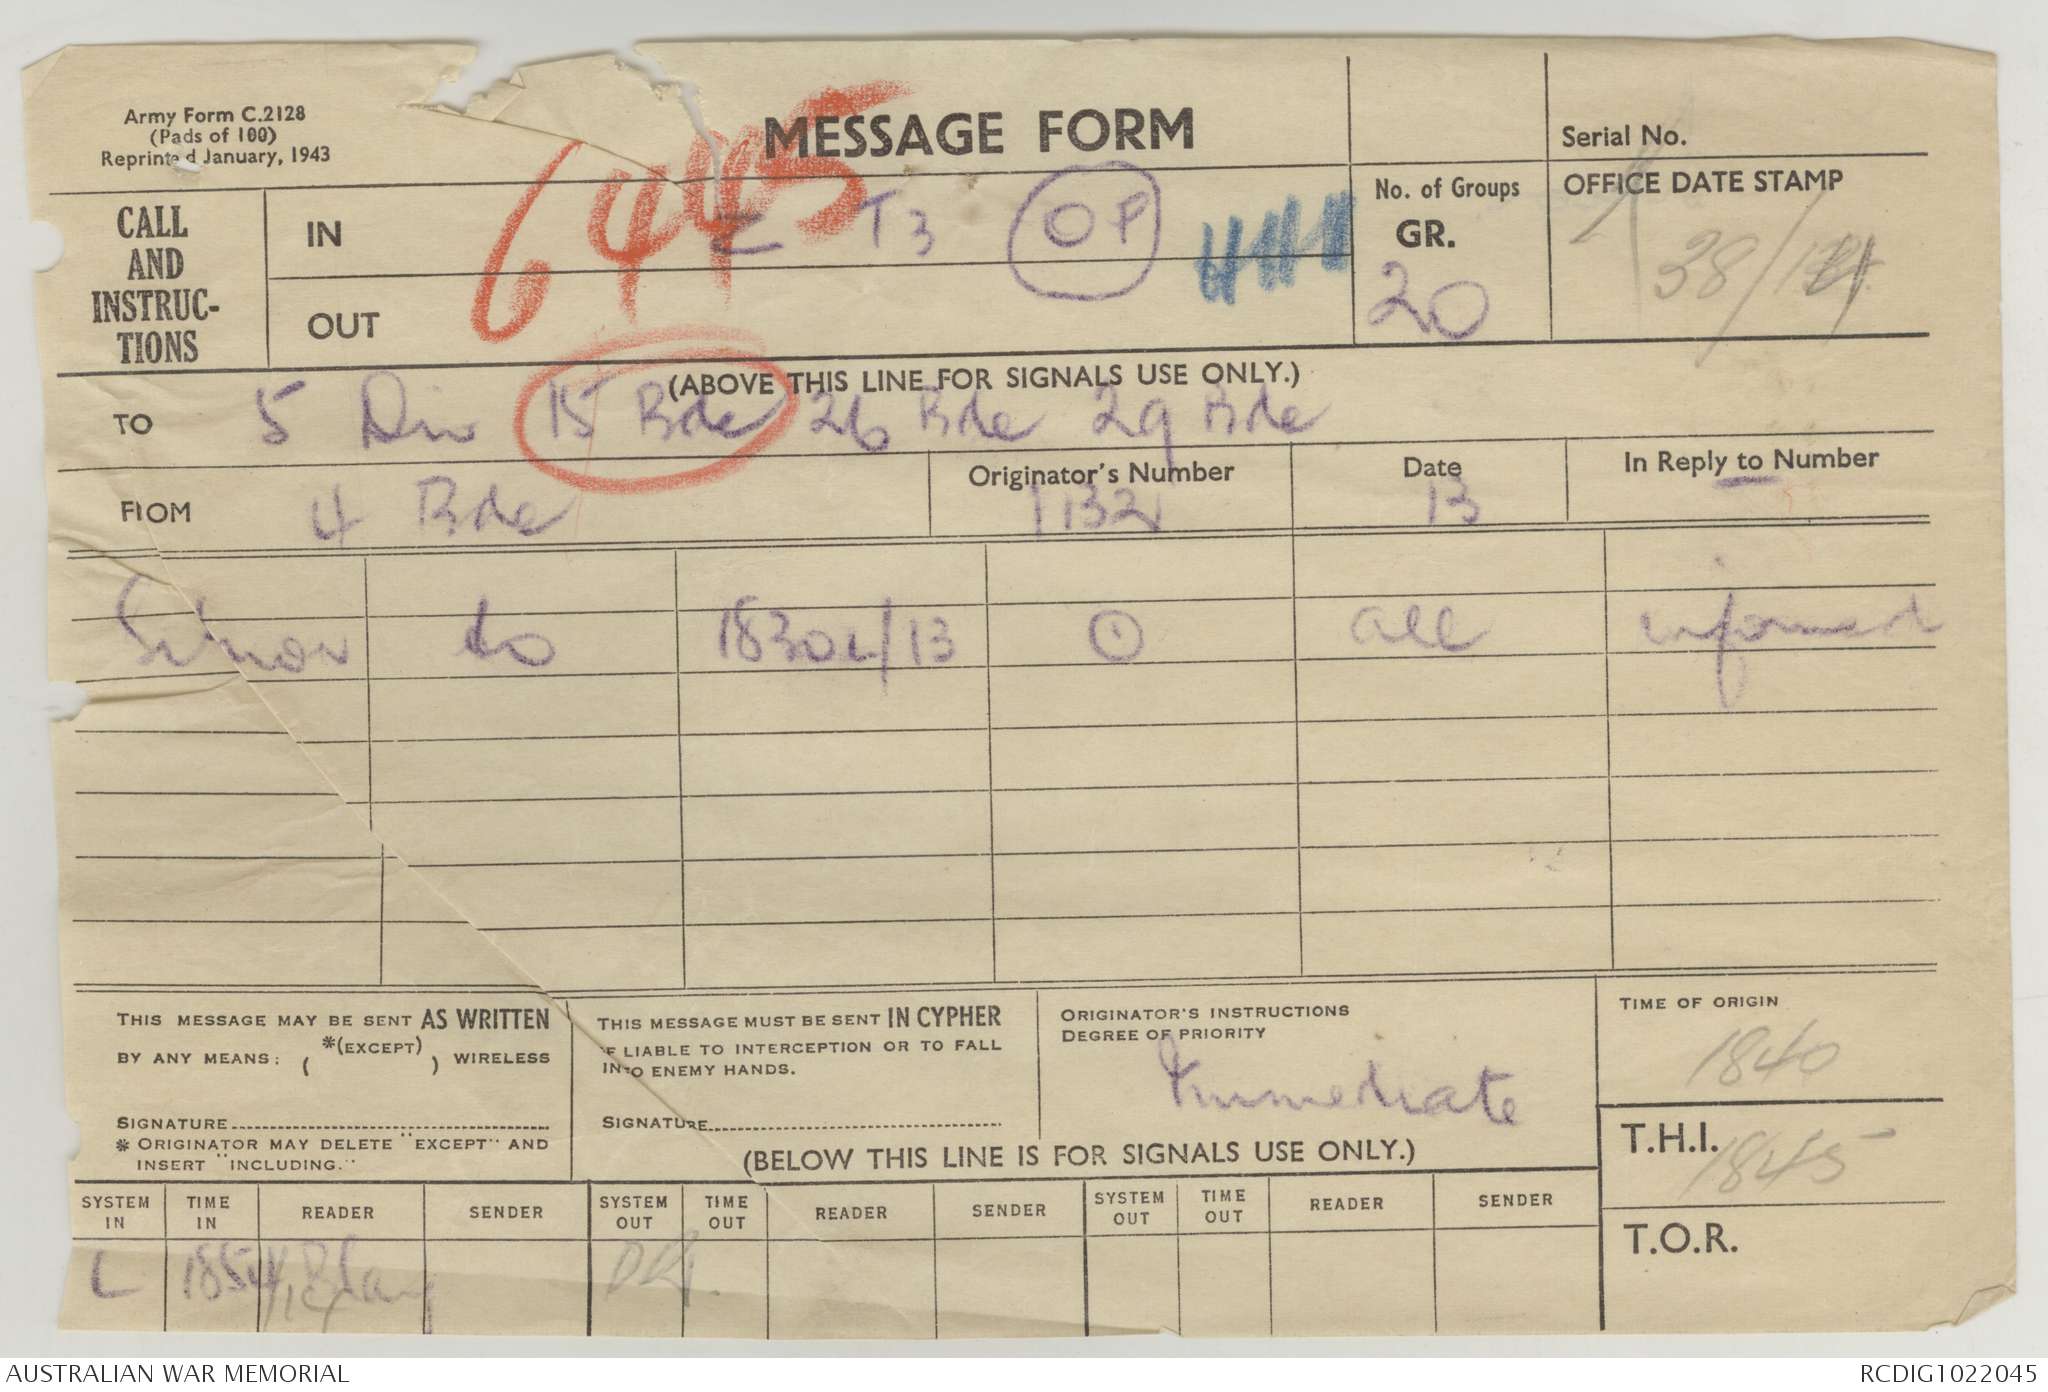 Army Form C.2128
(Pads of 100)
Reprinted January, 1943
MESSAGE FORM
Serial No.
CALL AND INSTRUC-TIONS
IN
6445
Z T3 OP
OUT
No. of Groups
GR.
20
OFFICE DATE STAMP
38/
(ABOVE THIS LINE FOR SIGNALS USE ONLY.)
TO 5 Div 15 Bde 26 Bde 29 Bde
FROM 4 Bde
Originator's Number
1132
Date
13
In Reply to Number
to 1830L/13 ⊙ all informed
THIS MESSAGE MAY BE SENT AS WRITTEN
BY ANY MEANS: ( *(EXCEPT) ) WIRELESS
SIGNATURE
* ORIGINATOR MAY DELETE "EXCEPT" AND
INSERT "INCLUDING."
THIS MESSAGE MUST BE SENT IN CYPHER
IF LIABLE TO INTERCEPTION OR TO FALL
INTO ENEMY HANDS.
SIGNATURE
ORIGINATOR'S INSTRUCTIONS
DEGREE OF PRIORITY
Immediate
(BELOW THIS LINE IS FOR SIGNALS USE ONLY.)
TIME OF ORIGIN
1840
T.H.I. 1845
T.O.R.
SYSTEM IN TIME IN READER SENDER SYSTEM OUT TIME OUT READER SENDER SYSTEM OUT TIME OUT READER SENDER
L 1854
AUSTRALIAN WAR MEMORIAL
RCDIG1022045